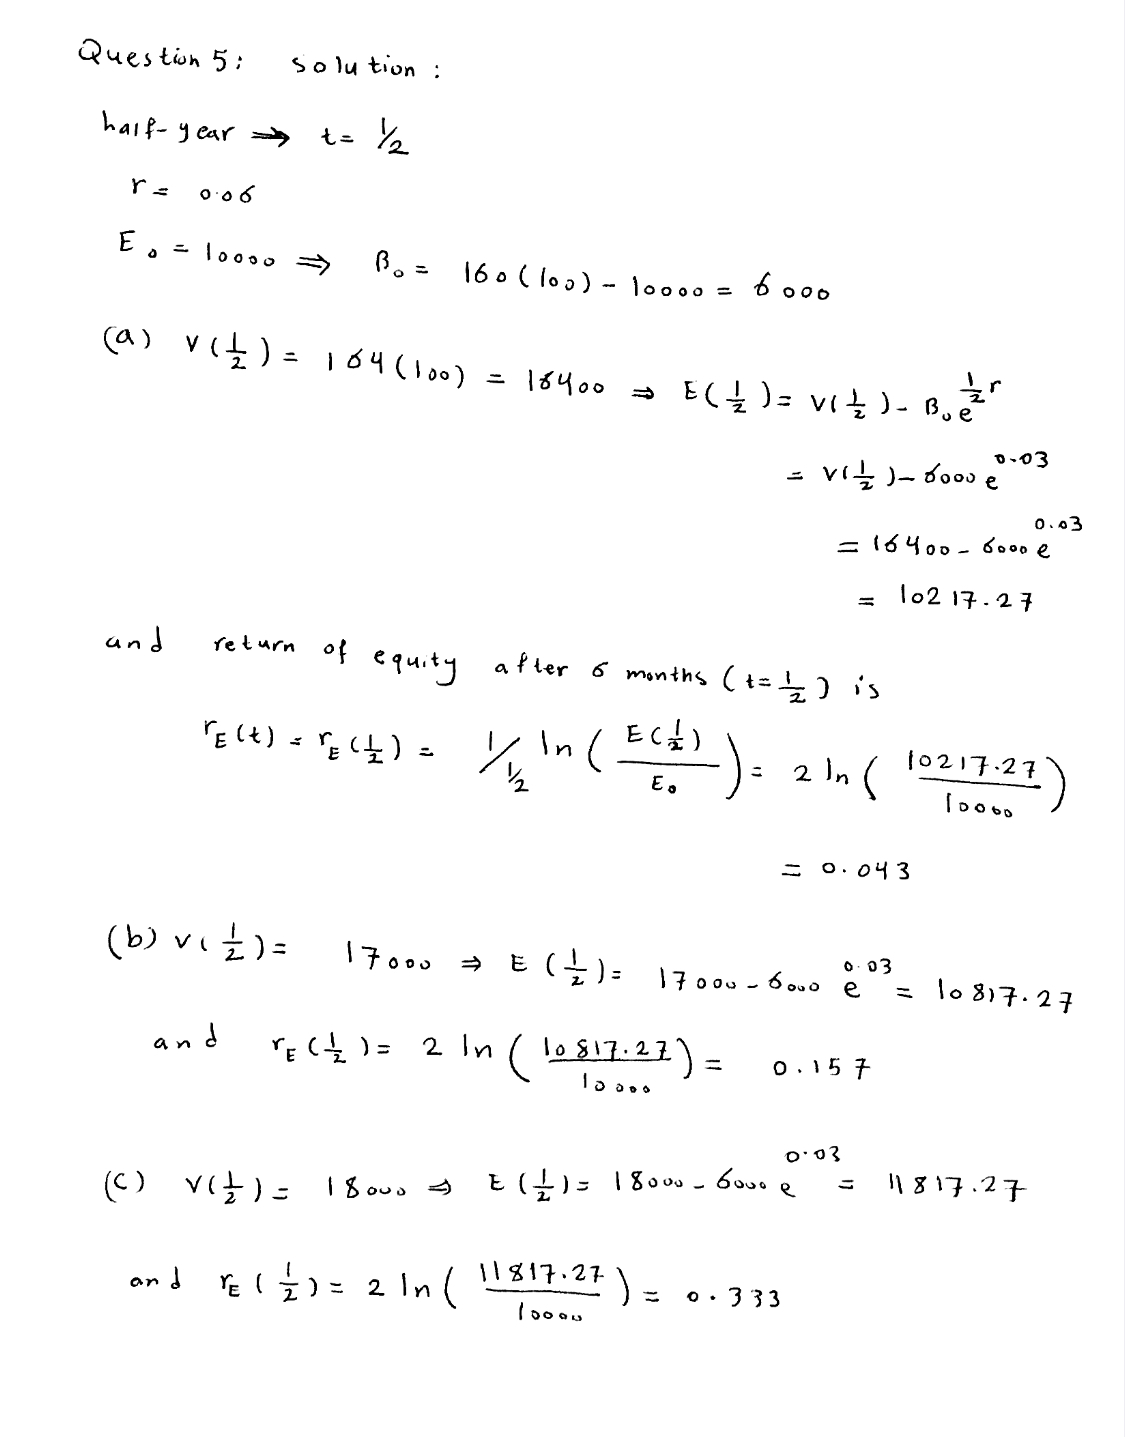 Question 5: solution:
half-year ⇒ t = 1/2
r = 0.06
E₀ = 10000 ⇒ B₀ = 160(100) - 10000 = 6000
(a) V(1/2) = 164(100) = 16400 ⇒ E(1/2) = V(1/2) - B₀e^(1/2 r)
= V(1/2) - 6000 e^0.03
= 16400 - 6000 e^0.03
= 10217.27
and return of equity after 6 months (t = 1/2) is
r_E(t) = r_E(1/2) = 1/(1/2) ln(E(1/2)/E₀) = 2 ln(10217.27/10000)
= 0.043
(b) V(1/2) = 17000 ⇒ E(1/2) = 17000 - 6000 e^0.03 = 10817.27
and r_E(1/2) = 2 ln(10817.27/10000) = 0.157
(c) V(1/2) = 18000 ⇒ E(1/2) = 18000 - 6000 e^0.03 = 11817.27
and r_E(1/2) = 2 ln(11817.27/10000) = 0.333